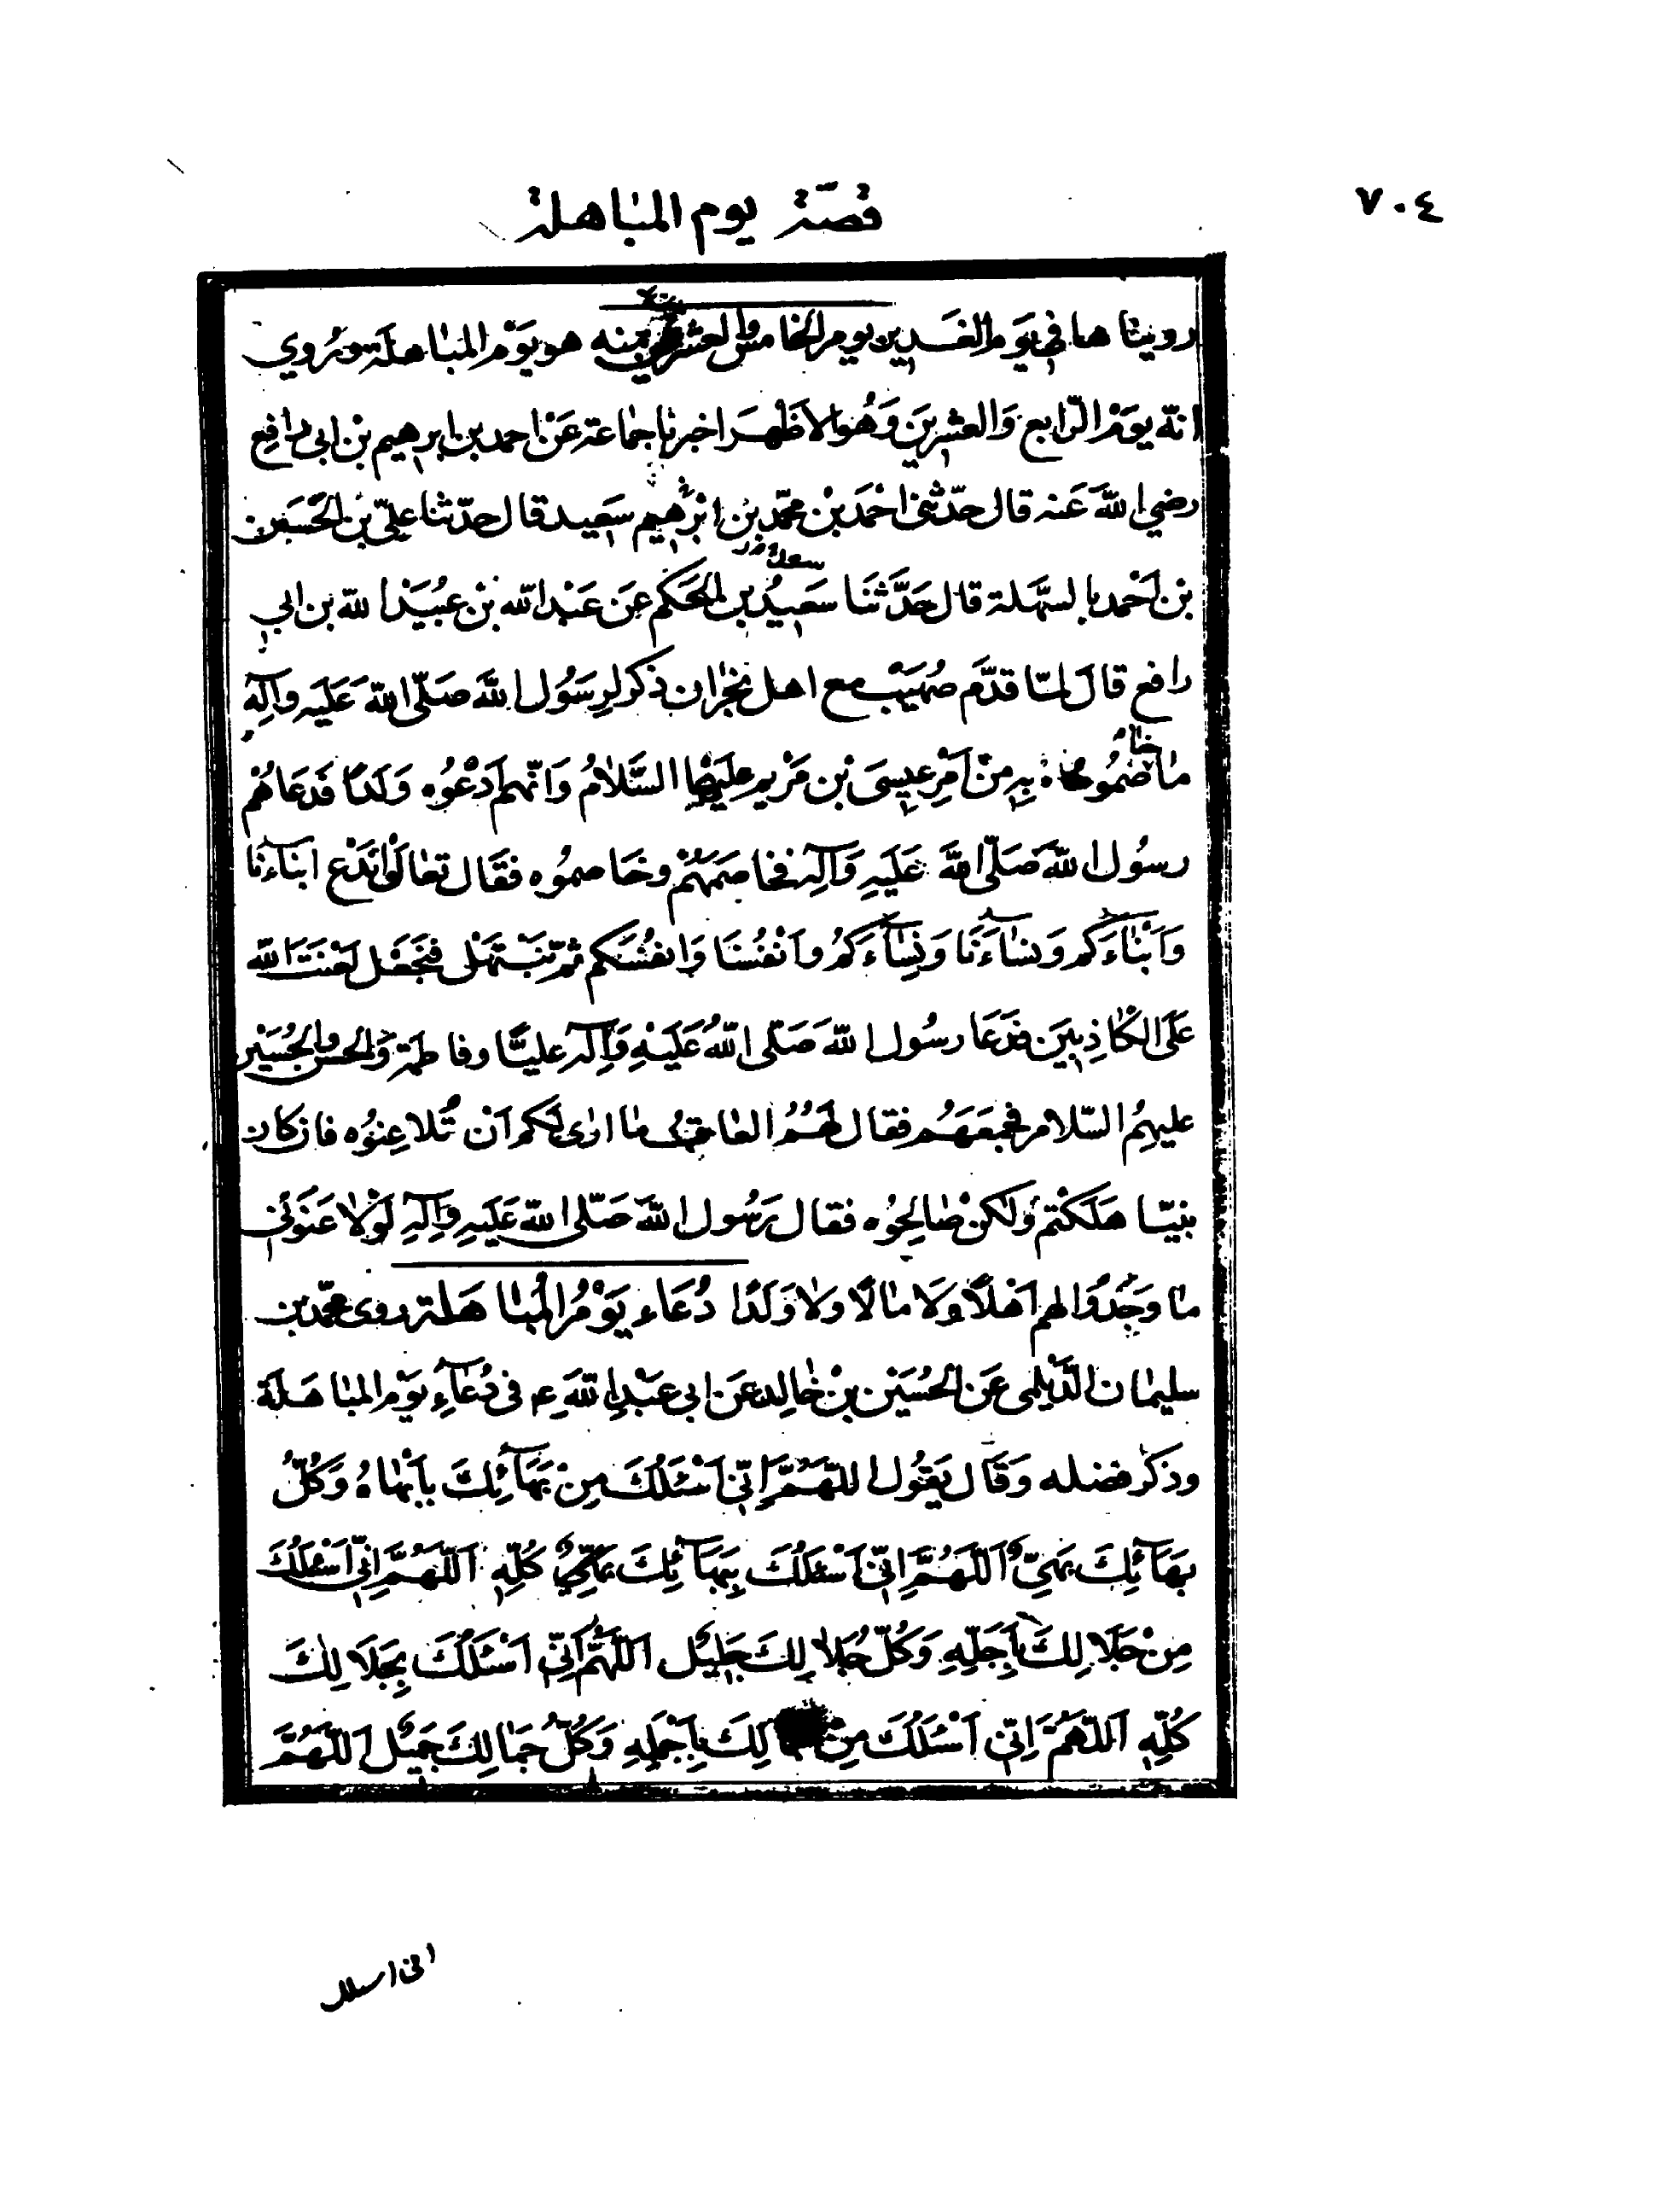 ٧٠٤
قصّة يوم المباهلة
رويناها في يَوم الغَدير يوم الخامس والعشرين منه هو يَوْم المباهلة ورُوي
انّه يومُ الرّابع وَالعشرينَ وَهُو الاَظْهَر اخبرنا جماعة عَنْ احمد بن ابرهيم بن ابى رافع
رضي اللهَ عَنه قال حدّثنى احْمَد بنْ محمّد بن ابْرٰهيم سَعيد قال حدّثنا علىّ بن الحُسَين
بن اَحْمد بالسهَّلة قال حَدَّثنَا سَعيدُ بن الحَكم عن عَبْد الله بْن عبُيَد الله بن ابى
رافع قالَ لمّا قدّم صُهَيَبْ مع اهل نجْران ذكر لرِسَوُل اللهَ صَلّى اللهَ عَلَيه وآلِهِ
مٰا خاصَموُه بِهِ مِنْ اَمْرِ عيسىَ بْن مَرْيم عليهما السَّلامُ وَانّهم اَدْعُوه وَلَدًا فَدعَاهُمْ
رسوُل اللهَ صَلّى اللهَ عَلَيهِ وَآلِه فخاصَمَهُمْ وخاصموُه فقَال تعٰالَوْا نَدْع ابنٰاءنَا
وَاَبْنٰاءَكم وَنسٰاءَنَا وَنِسٰاءَكمُ واَنْفُسَنا وَانفُسَكم ثمّ نبْتَهل فنَجْعَل لَعْنَتَ الله
عَلَى الكٰاذِبينَ فدَعَا رسوُل اللهَ صَلّى اللهُ عَلَيْهِ وَآلِه عليًّا وفاطمة وَالحسن والحُسَيْن
عليهمُ السّلام فجَمَعَهُم فقال لهَمُ العاقب ما ارٰى لكم اَنْ تُلاعِنوُه فان كان
نبيّا هَلَكْتمْ وَلكنْ صٰالِحوُه فقال رَسُول اللهَ صَلّى الله عَلَيهِ وَآلِهِ لَوْ لاعَنَوُنى
مٰا وَجَدُوا لهم اَهْلاً وَلَا مٰالًا ولٰا وَلَدًا دُعَاء يَوْمُ المُبٰاهَلة روى محمّد بن
سليمٰان الدّيْلمى عَن الحُسَيَن بنْ خٰالِد عَن ابى عَبْدِ اللهِ ع فى دُعٰاءِ يوَمْ المبٰاهَلَة
وذكر فضله وَقَال يَقوُل اللّهَمَُّ اِنّى اَسْئَلُكَ مِنْ بَهٰائِكَ باَبْهٰاهُ وَكُلُّ
بَهٰائِكَ بَهىٌّ اَللّهَمَُّ اِنّى اَسْئَلُكَ بِبَهٰائِكَ كُلّهِ اَللّهَمَُّ اِنّى اَسْئَلُكَ
مِنْ جَلَالِكَ باَجَلّهِ وَكُلّ جَلَالِكَ جَليل اَللّهُمَّ اِنّى اَسْئَلُكَ بِجَلَالِكَ
كُلّهِ اَللّهَمَُّ اِنّى اَسْئَلُكَ مِنْ لِكَ بِاَجْمَلِهِ وَكُلُّ جَمٰالِكَ جَميَل اَللّهَمَُّ
انى اسئلك